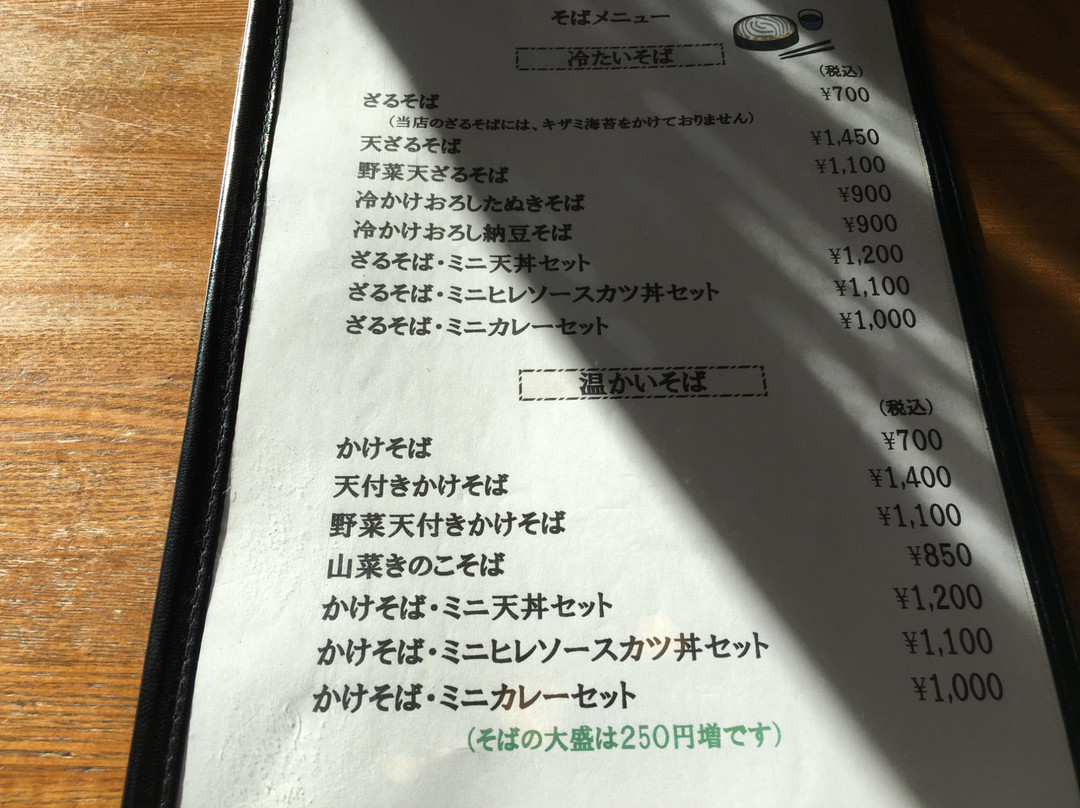 そばメニュー
冷たいそば
(税込)
ざるそば ¥700
(当店のざるそばには、キザミ海苔をかけておりません)
天ざるそば ¥1,450
野菜天ざるそば ¥1,100
冷かけおろしたぬきそば ¥900
冷かけおろし納豆そば ¥900
ざるそば・ミニ天丼セット ¥1,200
ざるそば・ミニヒレソースカツ丼セット ¥1,100
ざるそば・ミニカレーセット ¥1,000
温かいそば
(税込)
かけそば ¥700
天付きかけそば ¥1,400
野菜天付きかけそば ¥1,100
山菜きのこそば ¥850
かけそば・ミニ天丼セット ¥1,200
かけそば・ミニヒレソースカツ丼セット ¥1,100
かけそば・ミニカレーセット ¥1,000
(そばの大盛は250円増です)